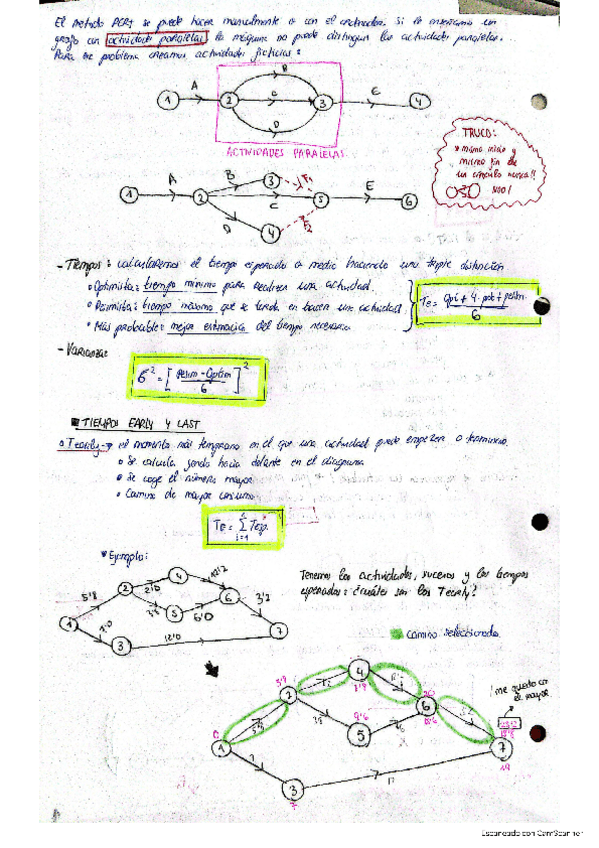 El metodo PERT se puede hacer manualmente o con el ordenador. Si le enseñamos un
grafo con actividades paralelas la máquina no puede distinguir las actividades paralelas.
Para ese problema creamos actividades ficticias:
A
B
C
D
E
1
2
3
4
ACTIVIDADES PARALELAS
TRUCO:
* mismo inicio y
mismo fin de
un círculo nunca!!
NOO!
A
B
C
D
E
F1
F2
1
2
3
4
5
6
- Tiempos: calcularemos el tiempo esperado o medio haciendo una triple distinción
Optimista: tiempo mínimo para realizar una actividad.
Pesimista: tiempo máximo que se tarda en hacer una actividad
Más probable: mejor estimación del tiempo necesario.
Te = opt + 4·prob + pesim
6
- Varianza:
σ² = [ pesim - optim / 6 ]²
TIEMPOS EARLY Y LAST
Tearly → el momento más temprano en el que una actividad puede empezar o terminar.
Se calcula yendo hacia delante en el diagrama
Se coge el número mayor
Camino de mayor consumo
TE = Σ Tesp.
i=1
* Ejemplo:
5'8
2'0
12'2
3'8
6'0
3'2
7'0
12'0
1
2
3
4
5
6
7
Tenemos las actividades, sucesos y los tiempos
esperados: ¿cuáles son los Tearly?
camino seleccionado
¡me quedo con
el mayor
0
1
2
3
4
5
6
7
5'8
7
9'6
19
Escaneado con CamScanner